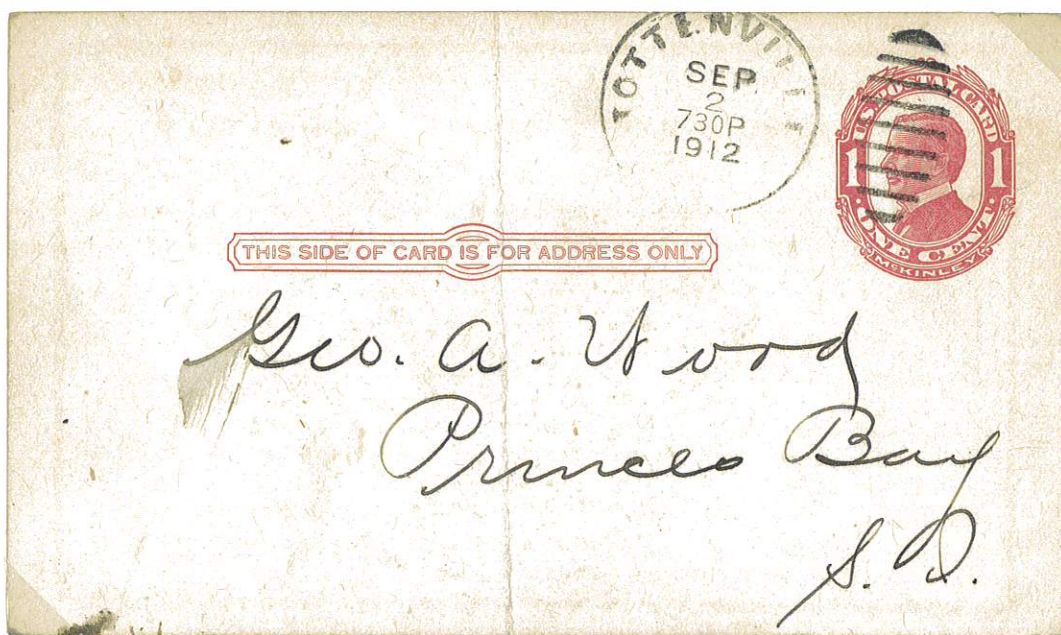 TOTTENVILL
SEP
2
730P
1912
U.S. POSTAL CARD
1 1
ONE CENT
McKINLEY
THIS SIDE OF CARD IS FOR ADDRESS ONLY
Geo. A. Wood
Princes Bay
S. I.